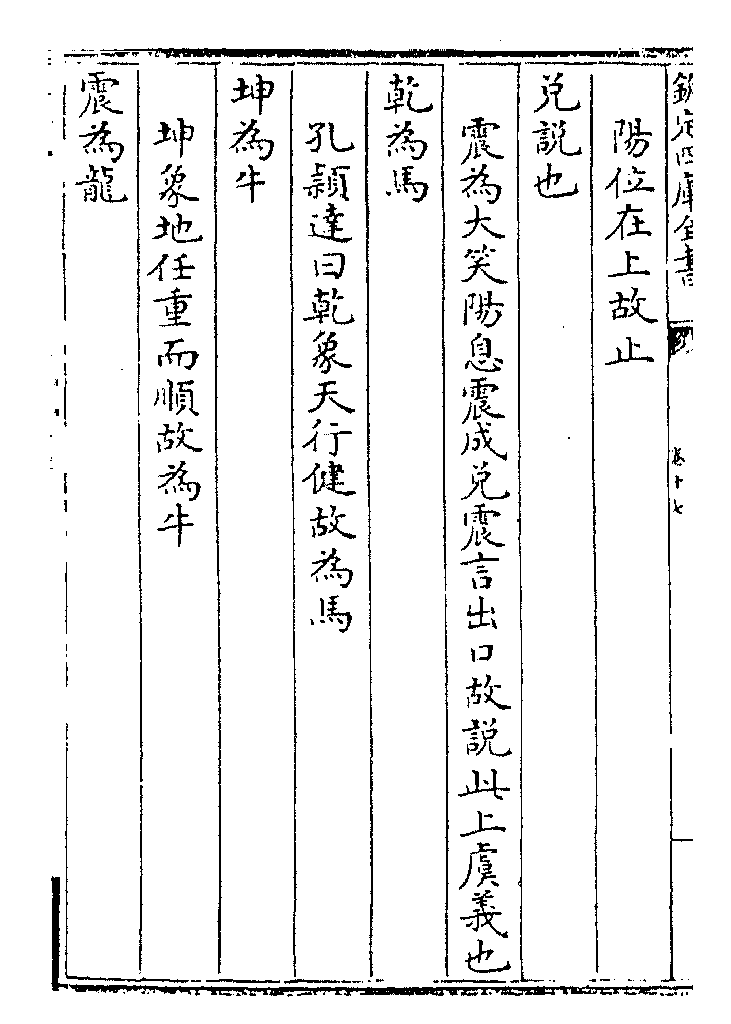 欽定四庫全書
卷十七
陽位在上故止
兌說也
震為大笑陽息震成兌震言出口故說此上虞義也
乾為馬
孔穎達曰乾象天行健故為馬
坤為牛
坤象地任重而順故為牛
震為龍